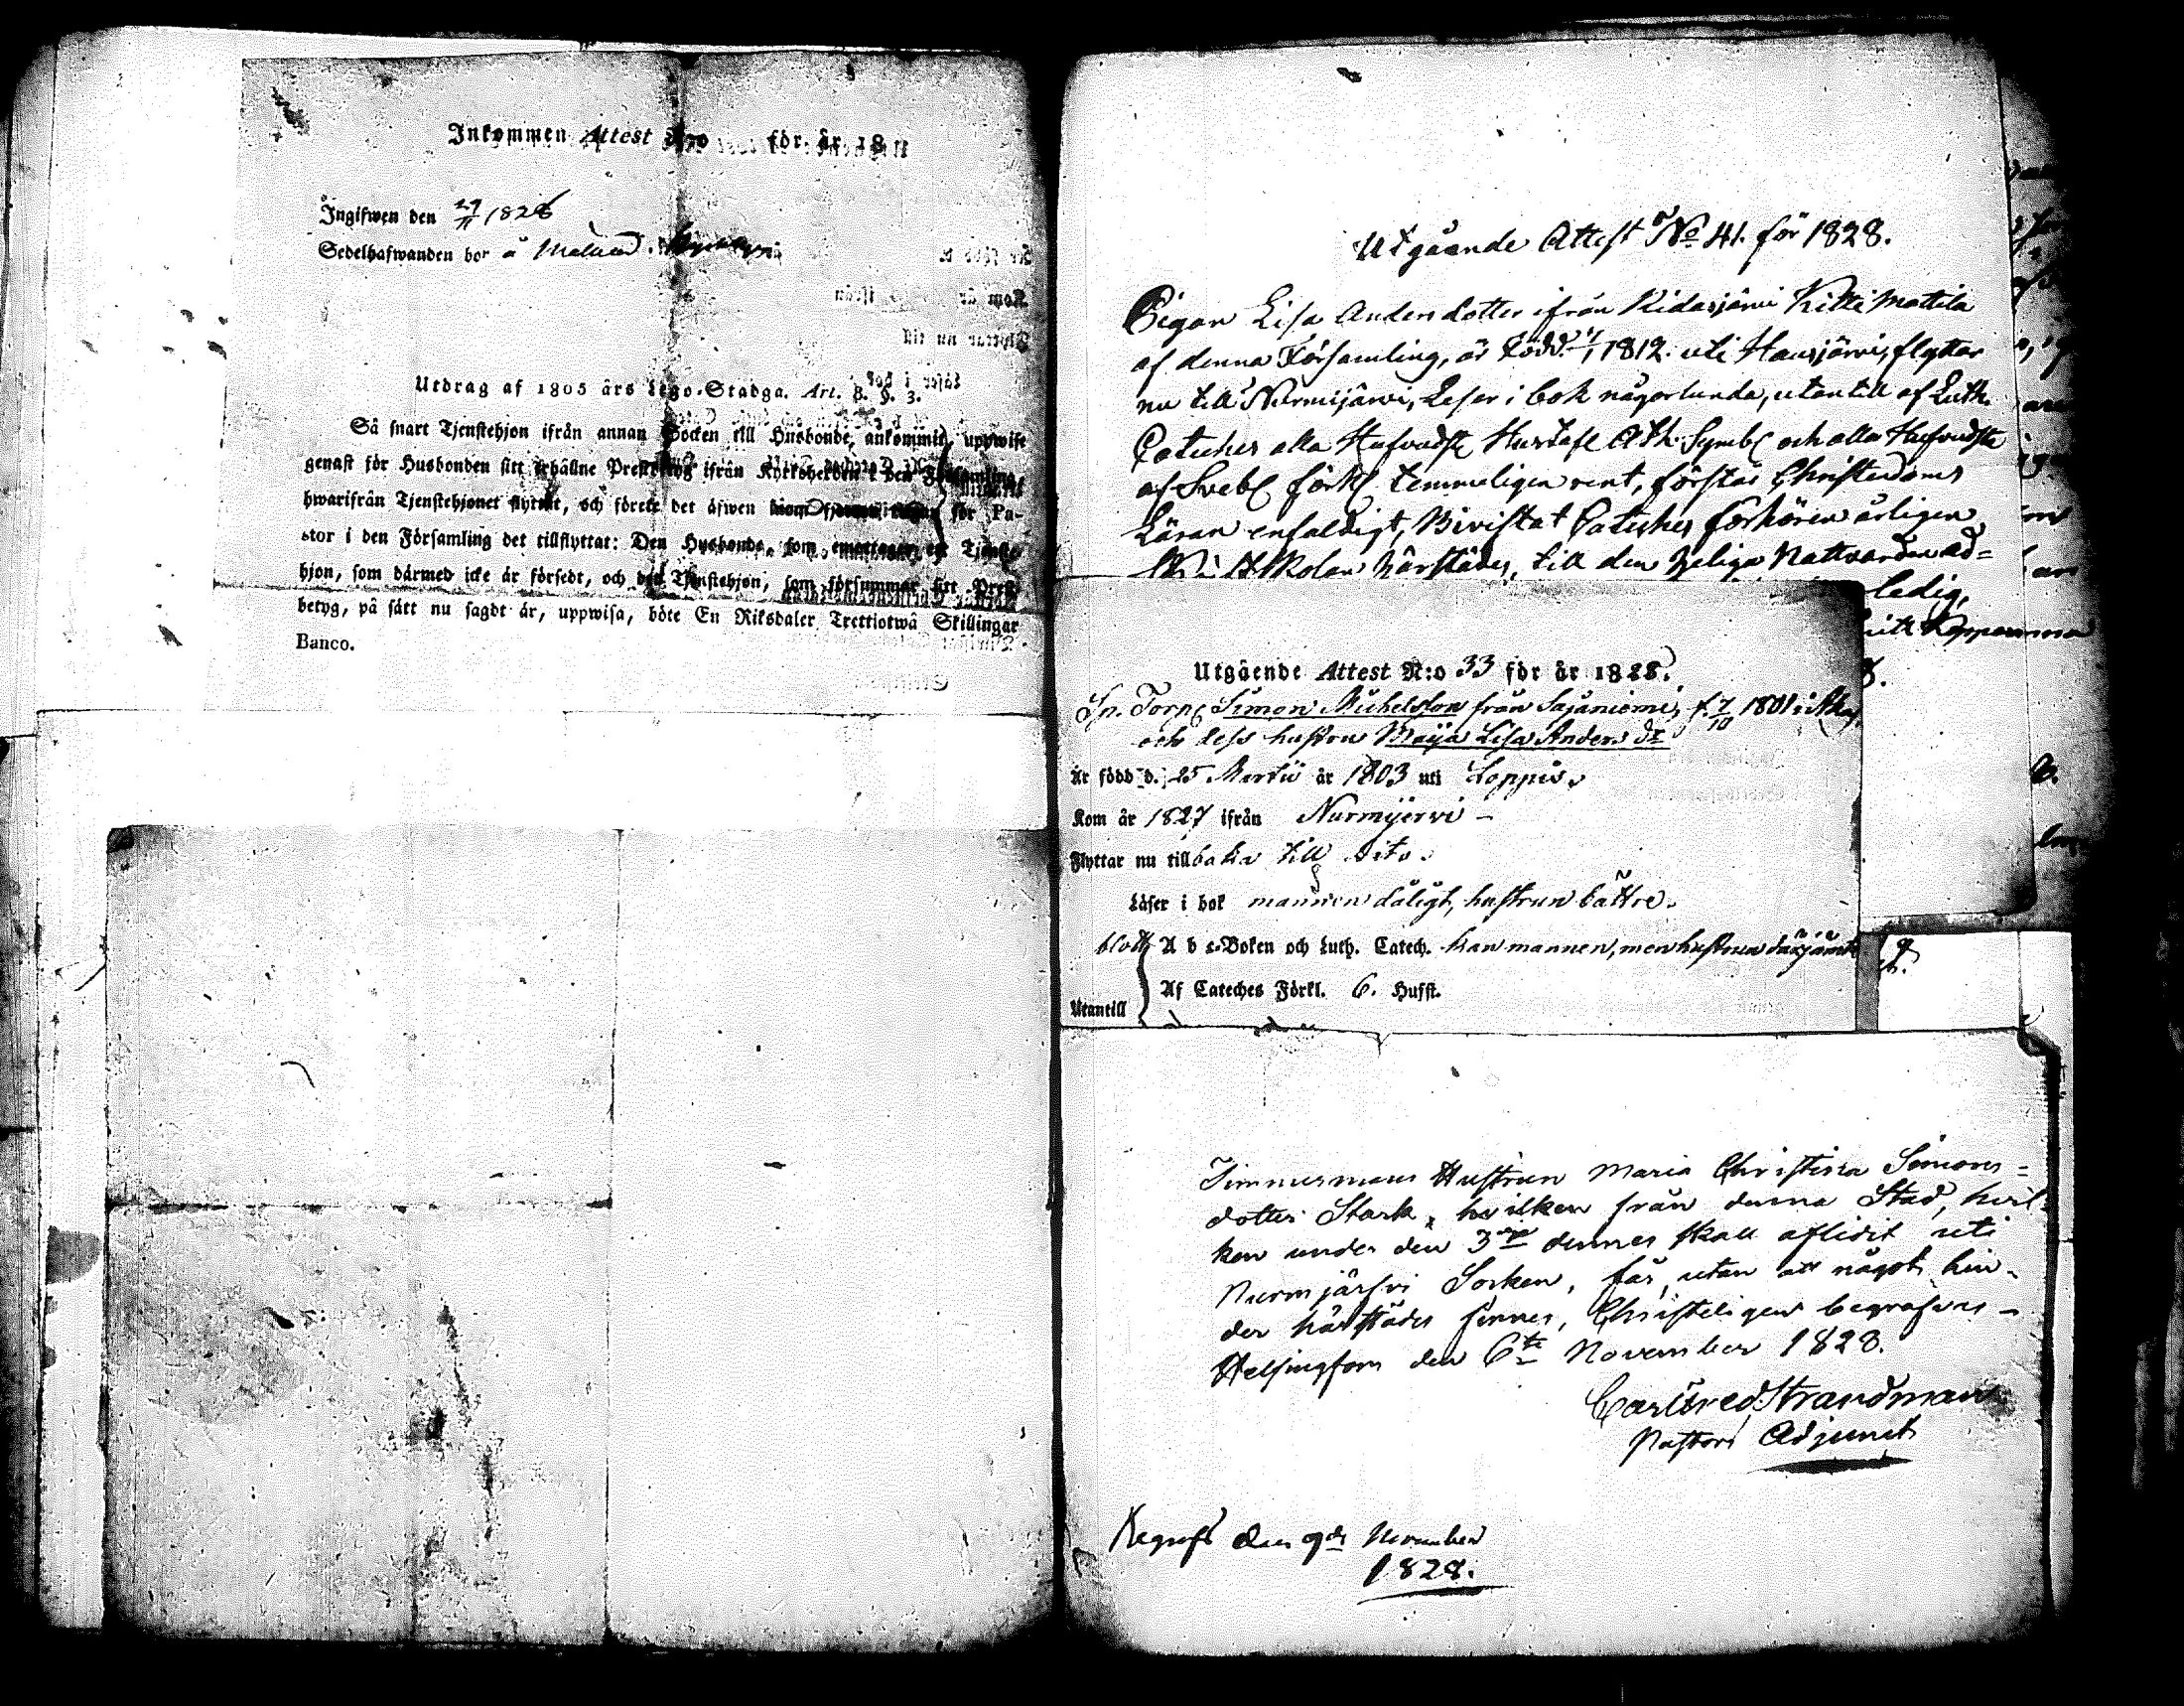 Inkommen Attest N:o för år 18
Ingifwen den 29/11 1828
Sedelhafwanden bor å
Utdrag af 1805 års Lego-Stadga. Art. 8. §. 3.
Så snart Tjenstehjon ifrån annan Socken till Husbonde, ankommit, uppwise
genast för Husbonden sitt erhållne Prestbetyg ifrån Kyrkoherden i den Församling,
hwarifrån Tjenstehjonet flyttat, och förete det äfwen för Pa-
stor i den Församling det tillflyttat: Den Husbonde, som emottager ett Tjenste-
hjon, som därmed icke är försedt, och det Tjenstehjon, som försummar sitt Prest-
betyg, på sätt nu sagdt är, uppwisa, böte En Riksdaler Trettiotwå Skillingar
Banco.
Utgående Attest No 41. för 1828.
Pigan Lisa Andersdotter ifrån Ridasjärvi Kitti Mattila
af denna Församling, är Född 1/1 1812. uti Hausjärvi, flyttar
nu till Nurmijärvi, Läser i bok någorlunda, utantill af Luth.
Cateches alla Hufvudst Hustafl Ath. Symb och alla Hufvudst
af Sveb förkl temmeligen rent, förstår Christendoms
Läran enfaldigt, Bivistat Cateches förhören årligen
skolan härstädes, till den heliga Nattvarden ad=
ledig,
Utgående Attest N:o 33 för år 1828.
Sp. Torp Simon Michelsson från Sajaniemi, f. 7/10 1801 i
och dess hustru Maija Lisa Anders dr
Är född d. 25 Martii år 1803 uti Loppis.
Kom år 1827 ifrån Nurmijervi -
Flyttar nu tillbaka till dito.
Läser i bok mannen dåligt, hustrun bättre.
blott A b c-Boken och Luth. Catech. kan mannen, men hustrun därjämte
Af Cateches Förkl. 6. Hufst.
Utantill
Timmermans Hustrun Maria Christina Simons=
dotter Stark, hvilken från denna Stad, hvil-
ken under den 3dje dennes skall aflidit uti
Nurmjärfvi Socken, får, utan att något hin-
der härstädes finnes, Christeligen begrafvas -
Helsingfors den 6te November 1828.
Carl Fred. Strandman
Pastors Adjunct
Begrofs den 9de November
1828.